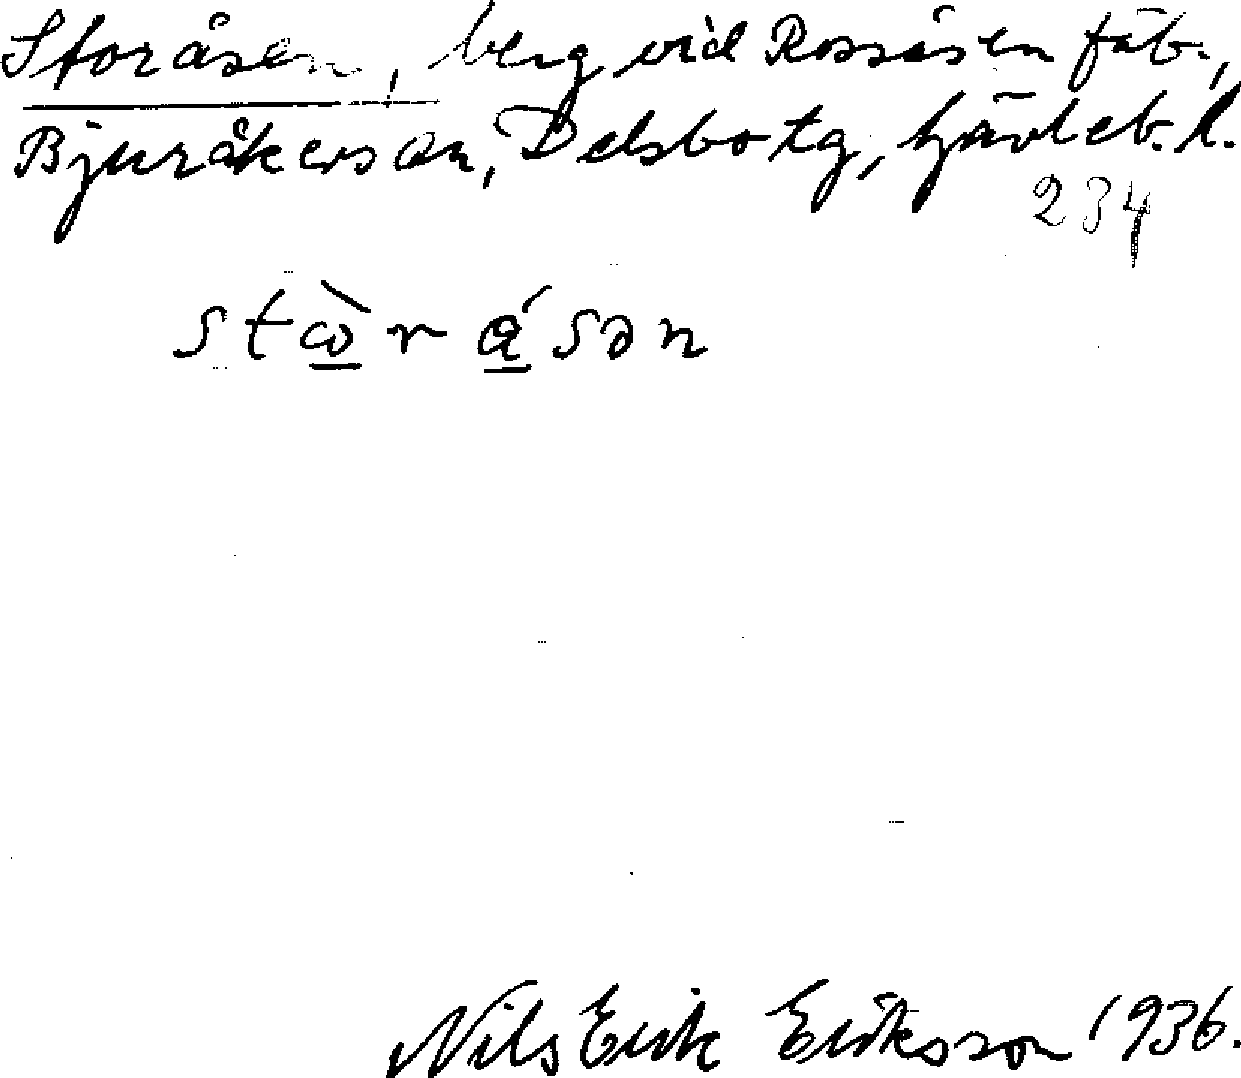 Storåsen, berg vid Rossåsen fäb.,
Bjuråkers sn, Delsbo tg, Gävleb. l.
234
stὼ̲rά̲sən
Nils Erik Eriksson 1936.